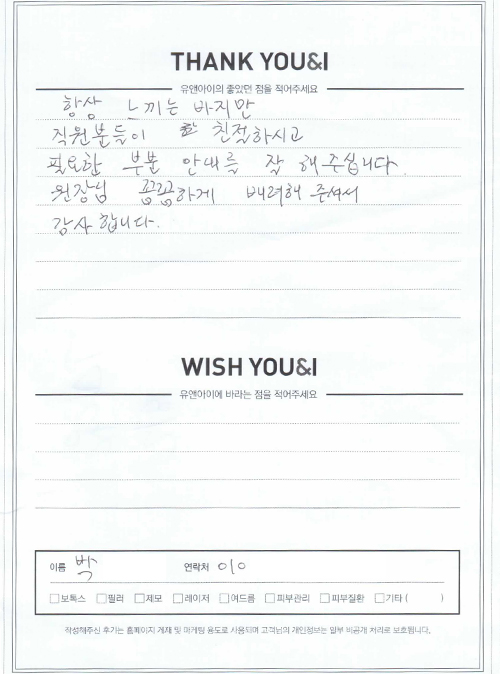 THANK YOU&I
유앤아이의 좋았던 점을 적어주세요
항상 느끼는 바지만
직원분들이 친절하시고
필요한 부분 안내를 잘 해주십니다.
원장님 꼼꼼하게 배려해 주셔서
감사합니다.
WISH YOU&I
유앤아이에 바라는 점을 적어주세요
이름 박 연락처 010
보톡스 필러 제모 레이저 여드름 피부관리 피부질환 기타 ( )
작성해주신 후기는 홈페이지 게재 및 마케팅 용도로 사용되며 고객님의 개인정보는 일부 비공개 처리로 보호됩니다.